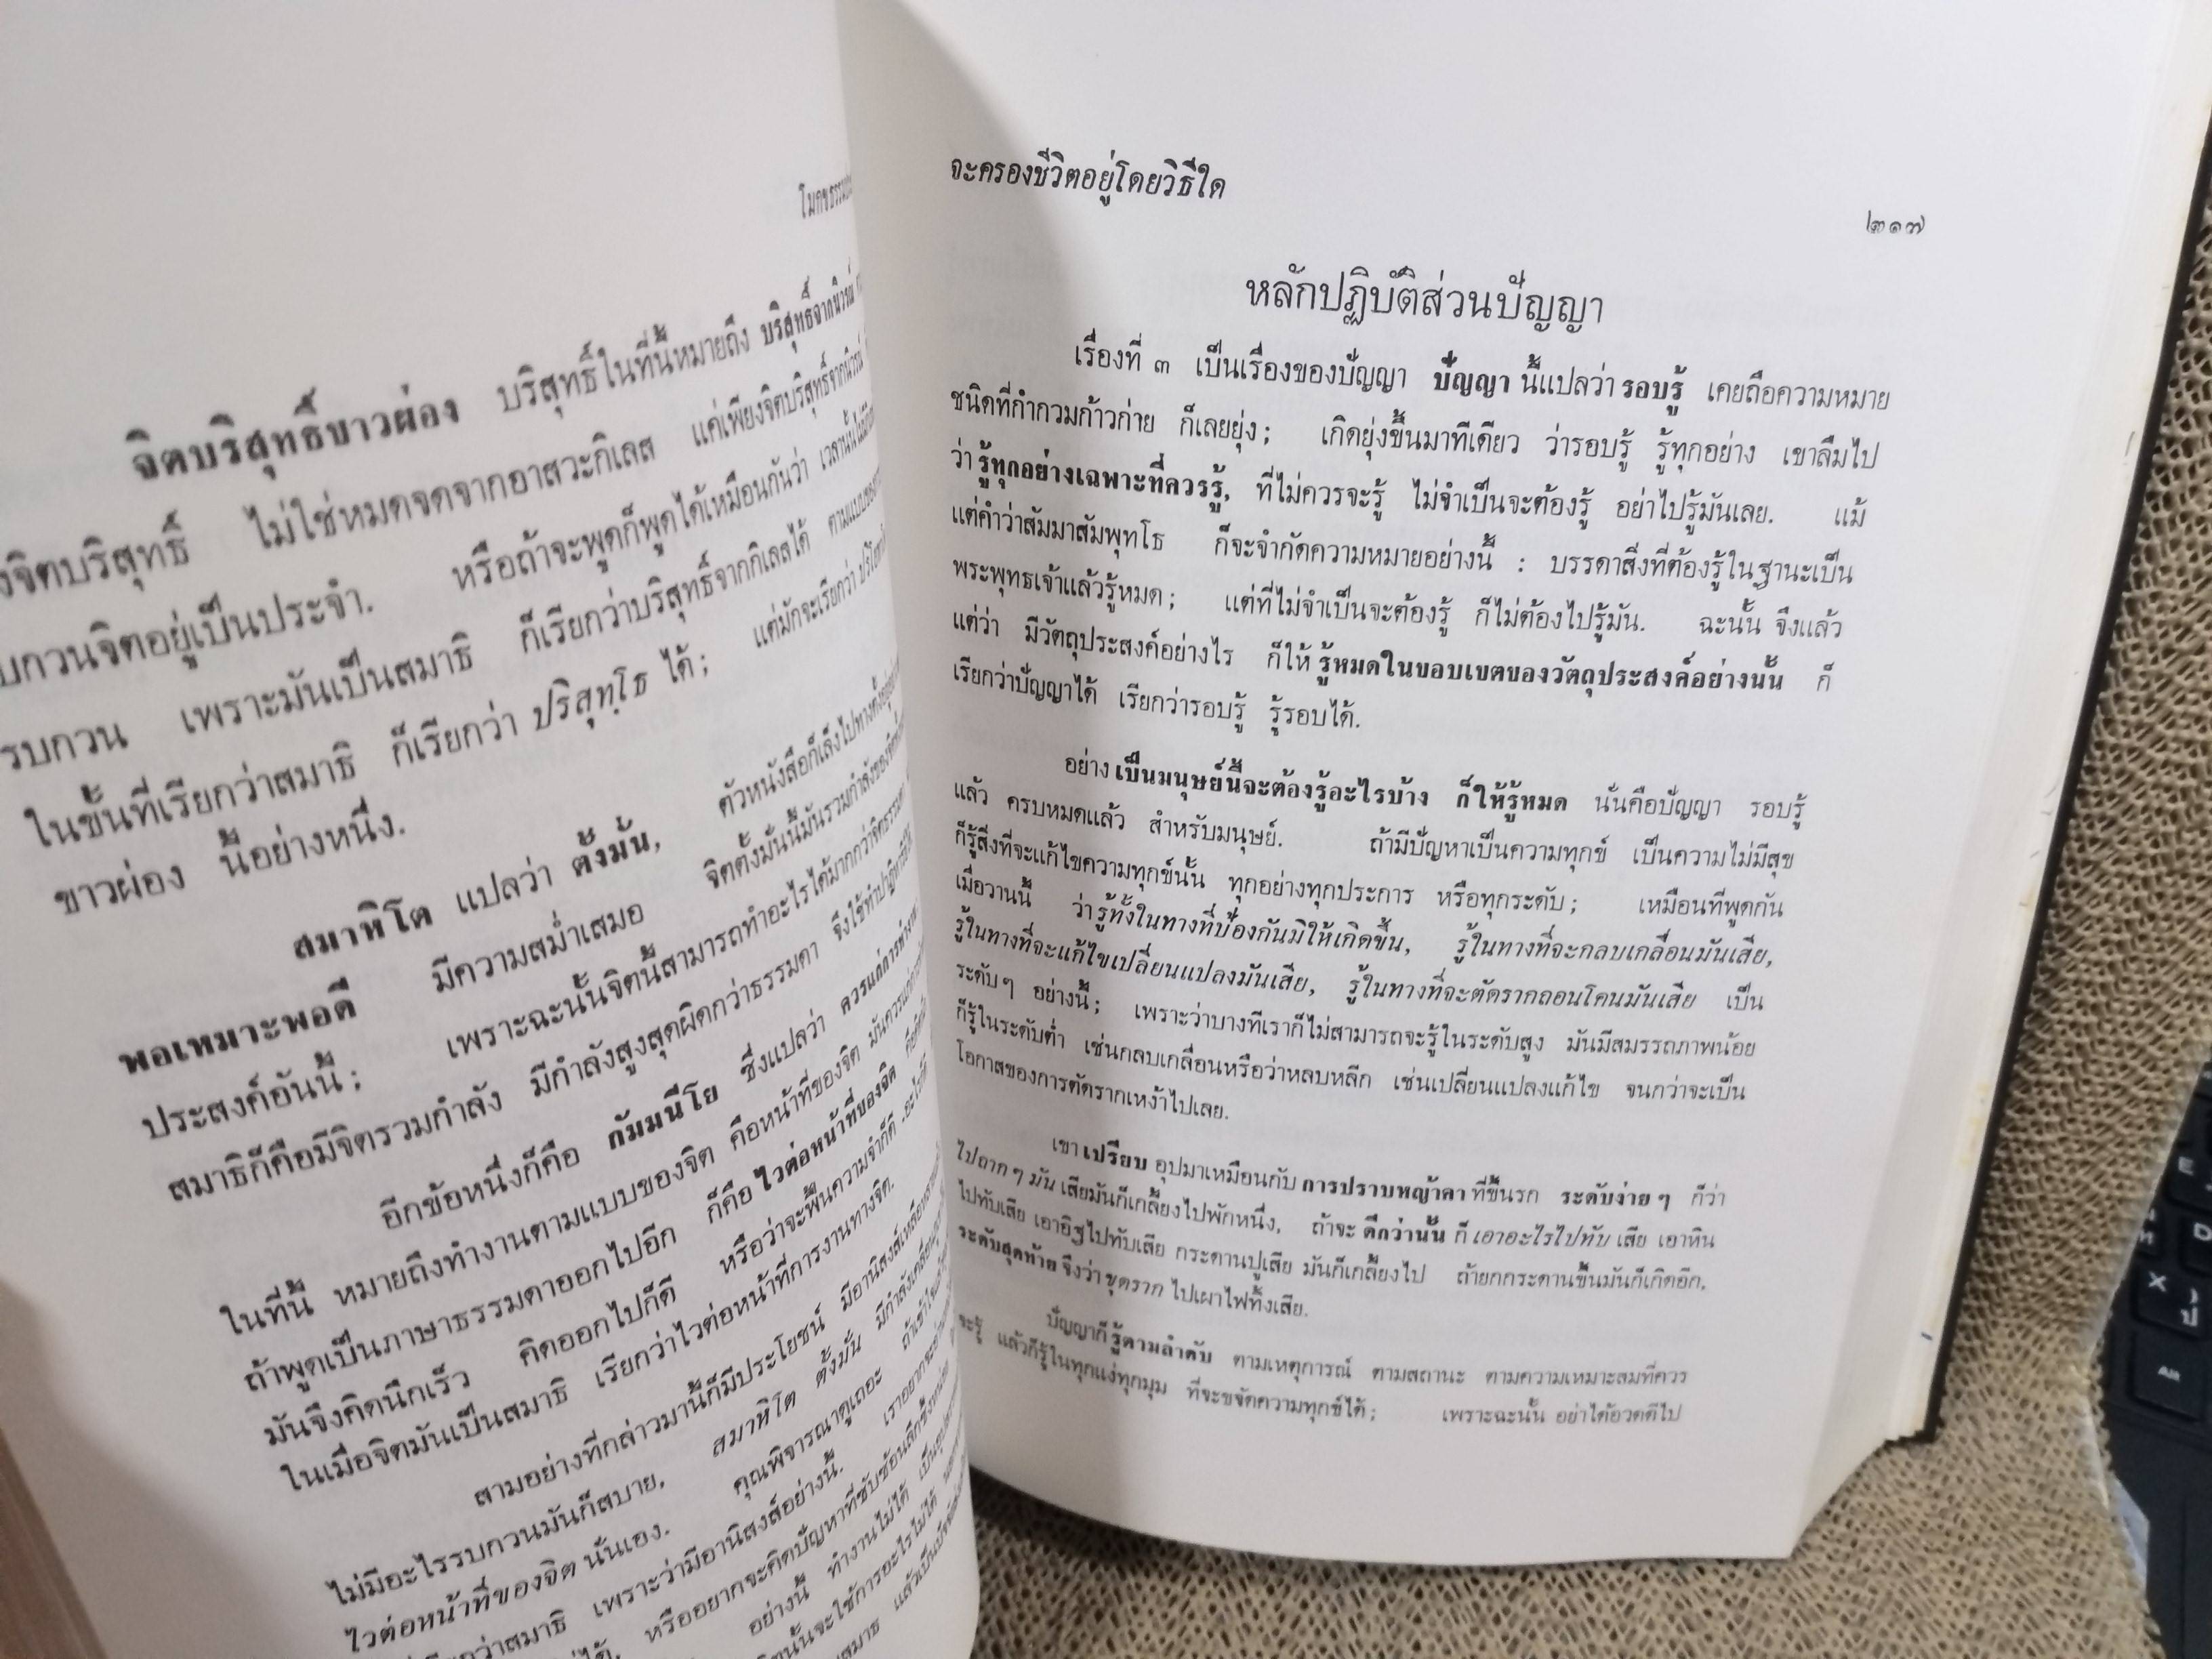 โมกขธรรม
จิตบริสุทธิ์ขาวผ่อง บริสุทธิ์ในที่นี้หมายถึง บริสุทธิ์จากนิวรณ์
จิตบริสุทธิ์ ไม่ใช่หมดจดจากอาสวะกิเลส แค่เพียงจิตบริสุทธิ์จากนิวรณ์
บกวนจิตอยู่เป็นประจำ. หรือถ้าจะพูดก็พูดได้เหมือนกันว่า
รบกวน เพราะมันเป็นสมาธิ ก็เรียกว่าบริสุทธิ์จากกิเลสได้
ในขั้นที่เรียกว่าสมาธิ ก็เรียกว่า ปริสุทฺโธ ได้; แต่มักจะเรียกว่า
ขาวผ่อง นี้อย่างหนึ่ง.
สมาหิโต แปลว่า ตั้งมั่น, ตัวหนังสือก็เล็งไปทางตั้ง
พอเหมาะพอดี มีความสม่ำเสมอ จิตตั้งมั่นนี้มันรวมกำลังของจิต
ประสงค์อันนี้; เพราะฉะนั้นจิตนี้สามารถทำอะไรได้มากกว่าจิตธรรมดา
สมาธิก็คือมีจิตรวมกำลัง มีกำลังสูงสุดผิดกว่าธรรมดา จึงใช้ทำ
อีกข้อหนึ่งก็คือ กัมมนีโย ซึ่งแปลว่า ควรแก่การทำงาน
ในที่นี้ หมายถึงทำงานตามแบบของจิต คือหน้าที่ของจิต มันควรแก่
ถ้าพูดเป็นภาษาธรรมดาออกไปอีก ก็คือ ไวต่อหน้าที่ของจิต
มันจึงคิดนึกเร็ว คิดออกไปก็ดี หรือว่าจะฟื้นความจำก็ดี
ในเมื่อจิตมันเป็นสมาธิ เรียกว่าไวต่อหน้าที่การงานทางจิต.
สามอย่างที่กล่าวมานี้ก็มีประโยชน์ มีอานิสงส์เหลือ
ไม่มีอะไรรบกวนมันก็สบาย, สมาหิโต ตั้งมั่น มีกำลัง
ไวต่อหน้าที่ของจิต นั่นเอง. คุณพิจารณาดูเถอะ ถ้า
เรียกว่าสมาธิ เพราะว่ามีอานิสงส์อย่างนี้. เราอยากจะ
ได้, หรืออยากจะคิดปัญหาที่ซับซ้อนลึกซึ้ง
อย่างนี้ ทำงานไม่ได้ เป็น
นั้นจะใช้การอะไรไม่ได้
สมาธิ แล้วเป็น
จะครองชีวิตอยู่โดยวิธีใด
๒๑๗
หลักปฏิบัติส่วนปัญญา
เรื่องที่ ๓ เป็นเรื่องของปัญญา ปัญญา นี้แปลว่า รอบรู้ เคยถือความหมาย
ชนิดที่กำกวมก้าวก่าย ก็เลยยุ่ง; เกิดยุ่งขึ้นมาทีเดียว ว่ารอบรู้ รู้ทุกอย่าง เขาลืมไป
ว่า รู้ทุกอย่างเฉพาะที่ควรรู้, ที่ไม่ควรจะรู้ ไม่จำเป็นจะต้องรู้ อย่าไปรู้มันเลย. แม้
แต่คำว่าสัมมาสัมพุทโธ ก็จะจำกัดความหมายอย่างนี้ : บรรดาสิ่งที่ต้องรู้ในฐานะเป็น
พระพุทธเจ้าแล้วรู้หมด; แต่ที่ไม่จำเป็นจะต้องรู้ ก็ไม่ต้องไปรู้มัน. ฉะนั้น จึงแล้ว
แต่ว่า มีวัตถุประสงค์อย่างไร ก็ให้ รู้หมดในขอบเขตของวัตถุประสงค์อย่างนั้น ก็
เรียกว่าปัญญาได้ เรียกว่ารอบรู้ รู้รอบได้.
อย่าง เป็นมนุษย์นี้จะต้องรู้อะไรบ้าง ก็ให้รู้หมด นั่นคือปัญญา รอบรู้
แล้ว ครบหมดแล้ว สำหรับมนุษย์. ถ้ามีปัญหาเป็นความทุกข์ เป็นความไม่มีสุข
ก็รู้สิ่งที่จะแก้ไขความทุกข์นั้น ทุกอย่างทุกประการ หรือทุกระดับ; เหมือนที่พูดกัน
เมื่อวานนี้ ว่ารู้ทั้งในทางที่ป้องกันมิให้เกิดขึ้น, รู้ในทางที่จะกลบเกลื่อนมันเสีย,
รู้ในทางที่จะแก้ไขเปลี่ยนแปลงมันเสีย, รู้ในทางที่จะตัดรากถอนโคนมันเสีย เป็น
ระดับๆ อย่างนี้; เพราะว่าบางทีเราก็ไม่สามารถจะรู้ในระดับสูง มันมีสมรรถภาพน้อย
ก็รู้ในระดับต่ำ เช่นกลบเกลื่อนหรือว่าหลบหลีก เช่นเปลี่ยนแปลงแก้ไข จนกว่าจะเป็น
โอกาสของการตัดรากเหง้าไปเลย.
เขา เปรียบ อุปมาเหมือนกับ การปราบหญ้าคา ที่ขึ้นรก ระดับง่าย ๆ ก็ว่า
ไปถาก ๆ มัน เสียมันก็เกลี้ยงไปพักหนึ่ง, ถ้าจะ ดีกว่านั้น ก็ เอาอะไรไปทับ เสีย เอาหิน
ไปทับเสีย เอาอิฐไปทับเสีย กระดานปูเสีย มันก็เกลี้ยงไป ถ้ายกกระดานขึ้นมันก็เกิดอีก.
ระดับสุดท้าย จึงว่า ขุดราก ไปเผาไฟทิ้งเสีย.
ปัญญาก็ รู้ตามลำดับ ตามเหตุการณ์ ตามสถานะ ตามความเหมาะสมที่ควร
จะรู้ แล้วก็รู้ในทุกแง่ทุกมุม ที่จะขจัดความทุกข์ได้; เพราะฉะนั้น อย่าได้อวดดีไป